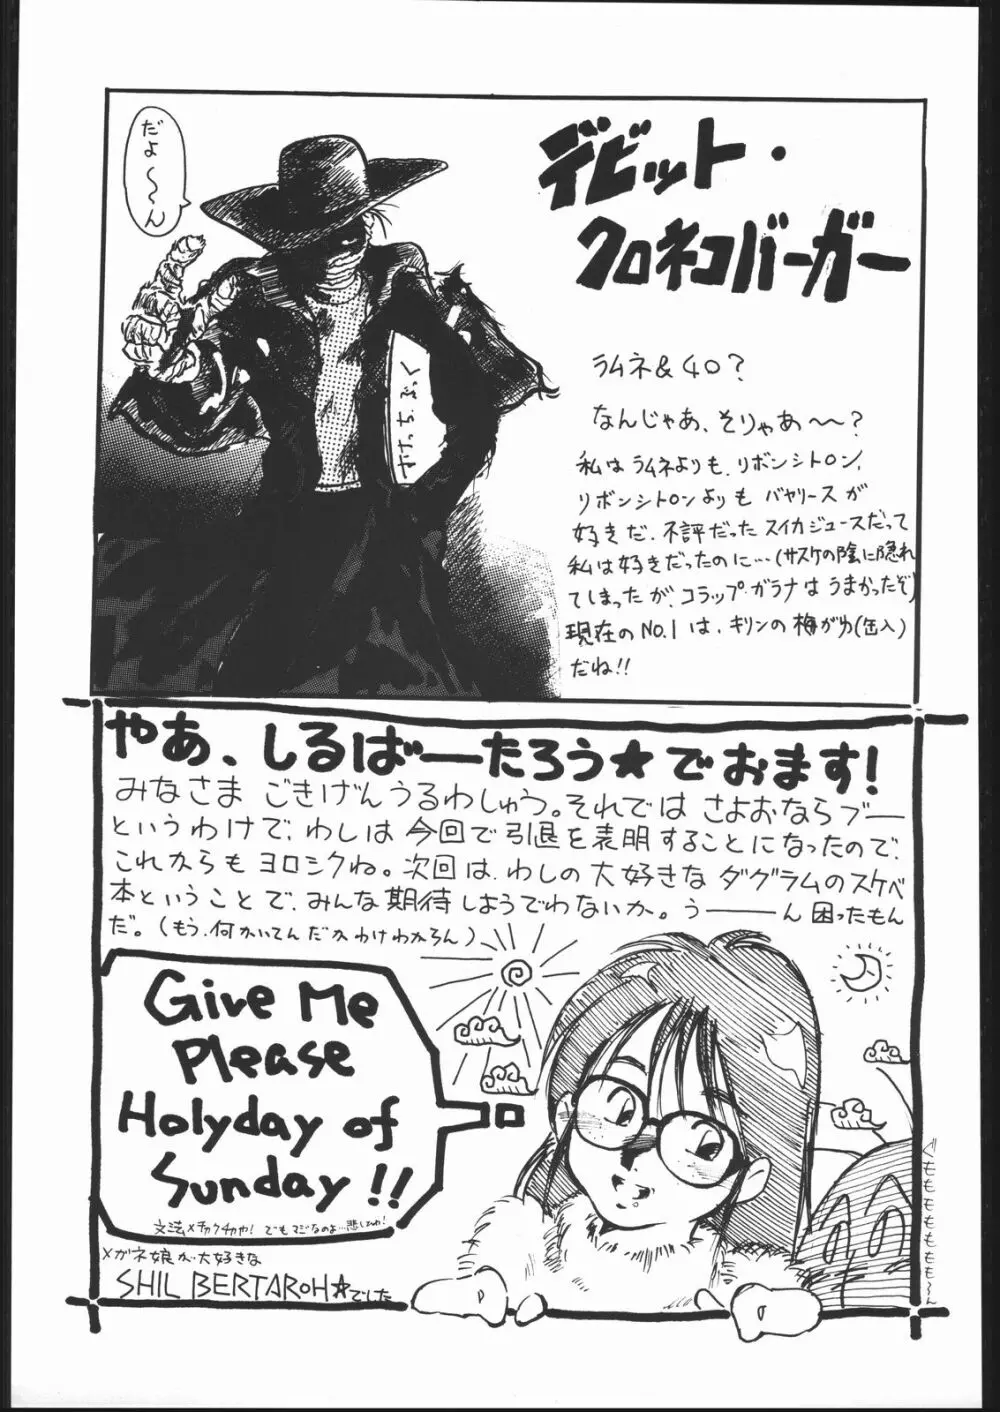 デビット・
クロネコバーガー
だよ〜〜ん
ラムネ&40?
なんじゃあ、そりゃあ〜〜?
私はラムネよりも、リボンシトロン、
リボンシトロンよりもバヤリースが
好きだ、不評だったスイカジュースだって
私は好きだったのに…(サスケの陰に隠れ
てしまったが、コラップガラナはうまかったぞ)
現在のNO.1は、キリンの梅がわ(缶入)
だね!!
やあ、しるばーたろう★でおます!
みなさま ごきげんうるわしゅう。それでは さよおならブー
というわけで、わしは今回で引退を表明することになったので、
これからもヨロシクね。次回は、わしの大好きなダグラムのスケベ
本ということで、みんな期待しようでわないか。うーーん困ったもん
だ。(もう、何かいてんだかわけわからん)
Give Me
Please
Holyday of
Sunday!!
文法メチャクチャや! でもマジなのよ…悲しいわ!
メガネ娘が大好きな
SHIL BERTAROH★でした
ぐももももももも〜ん